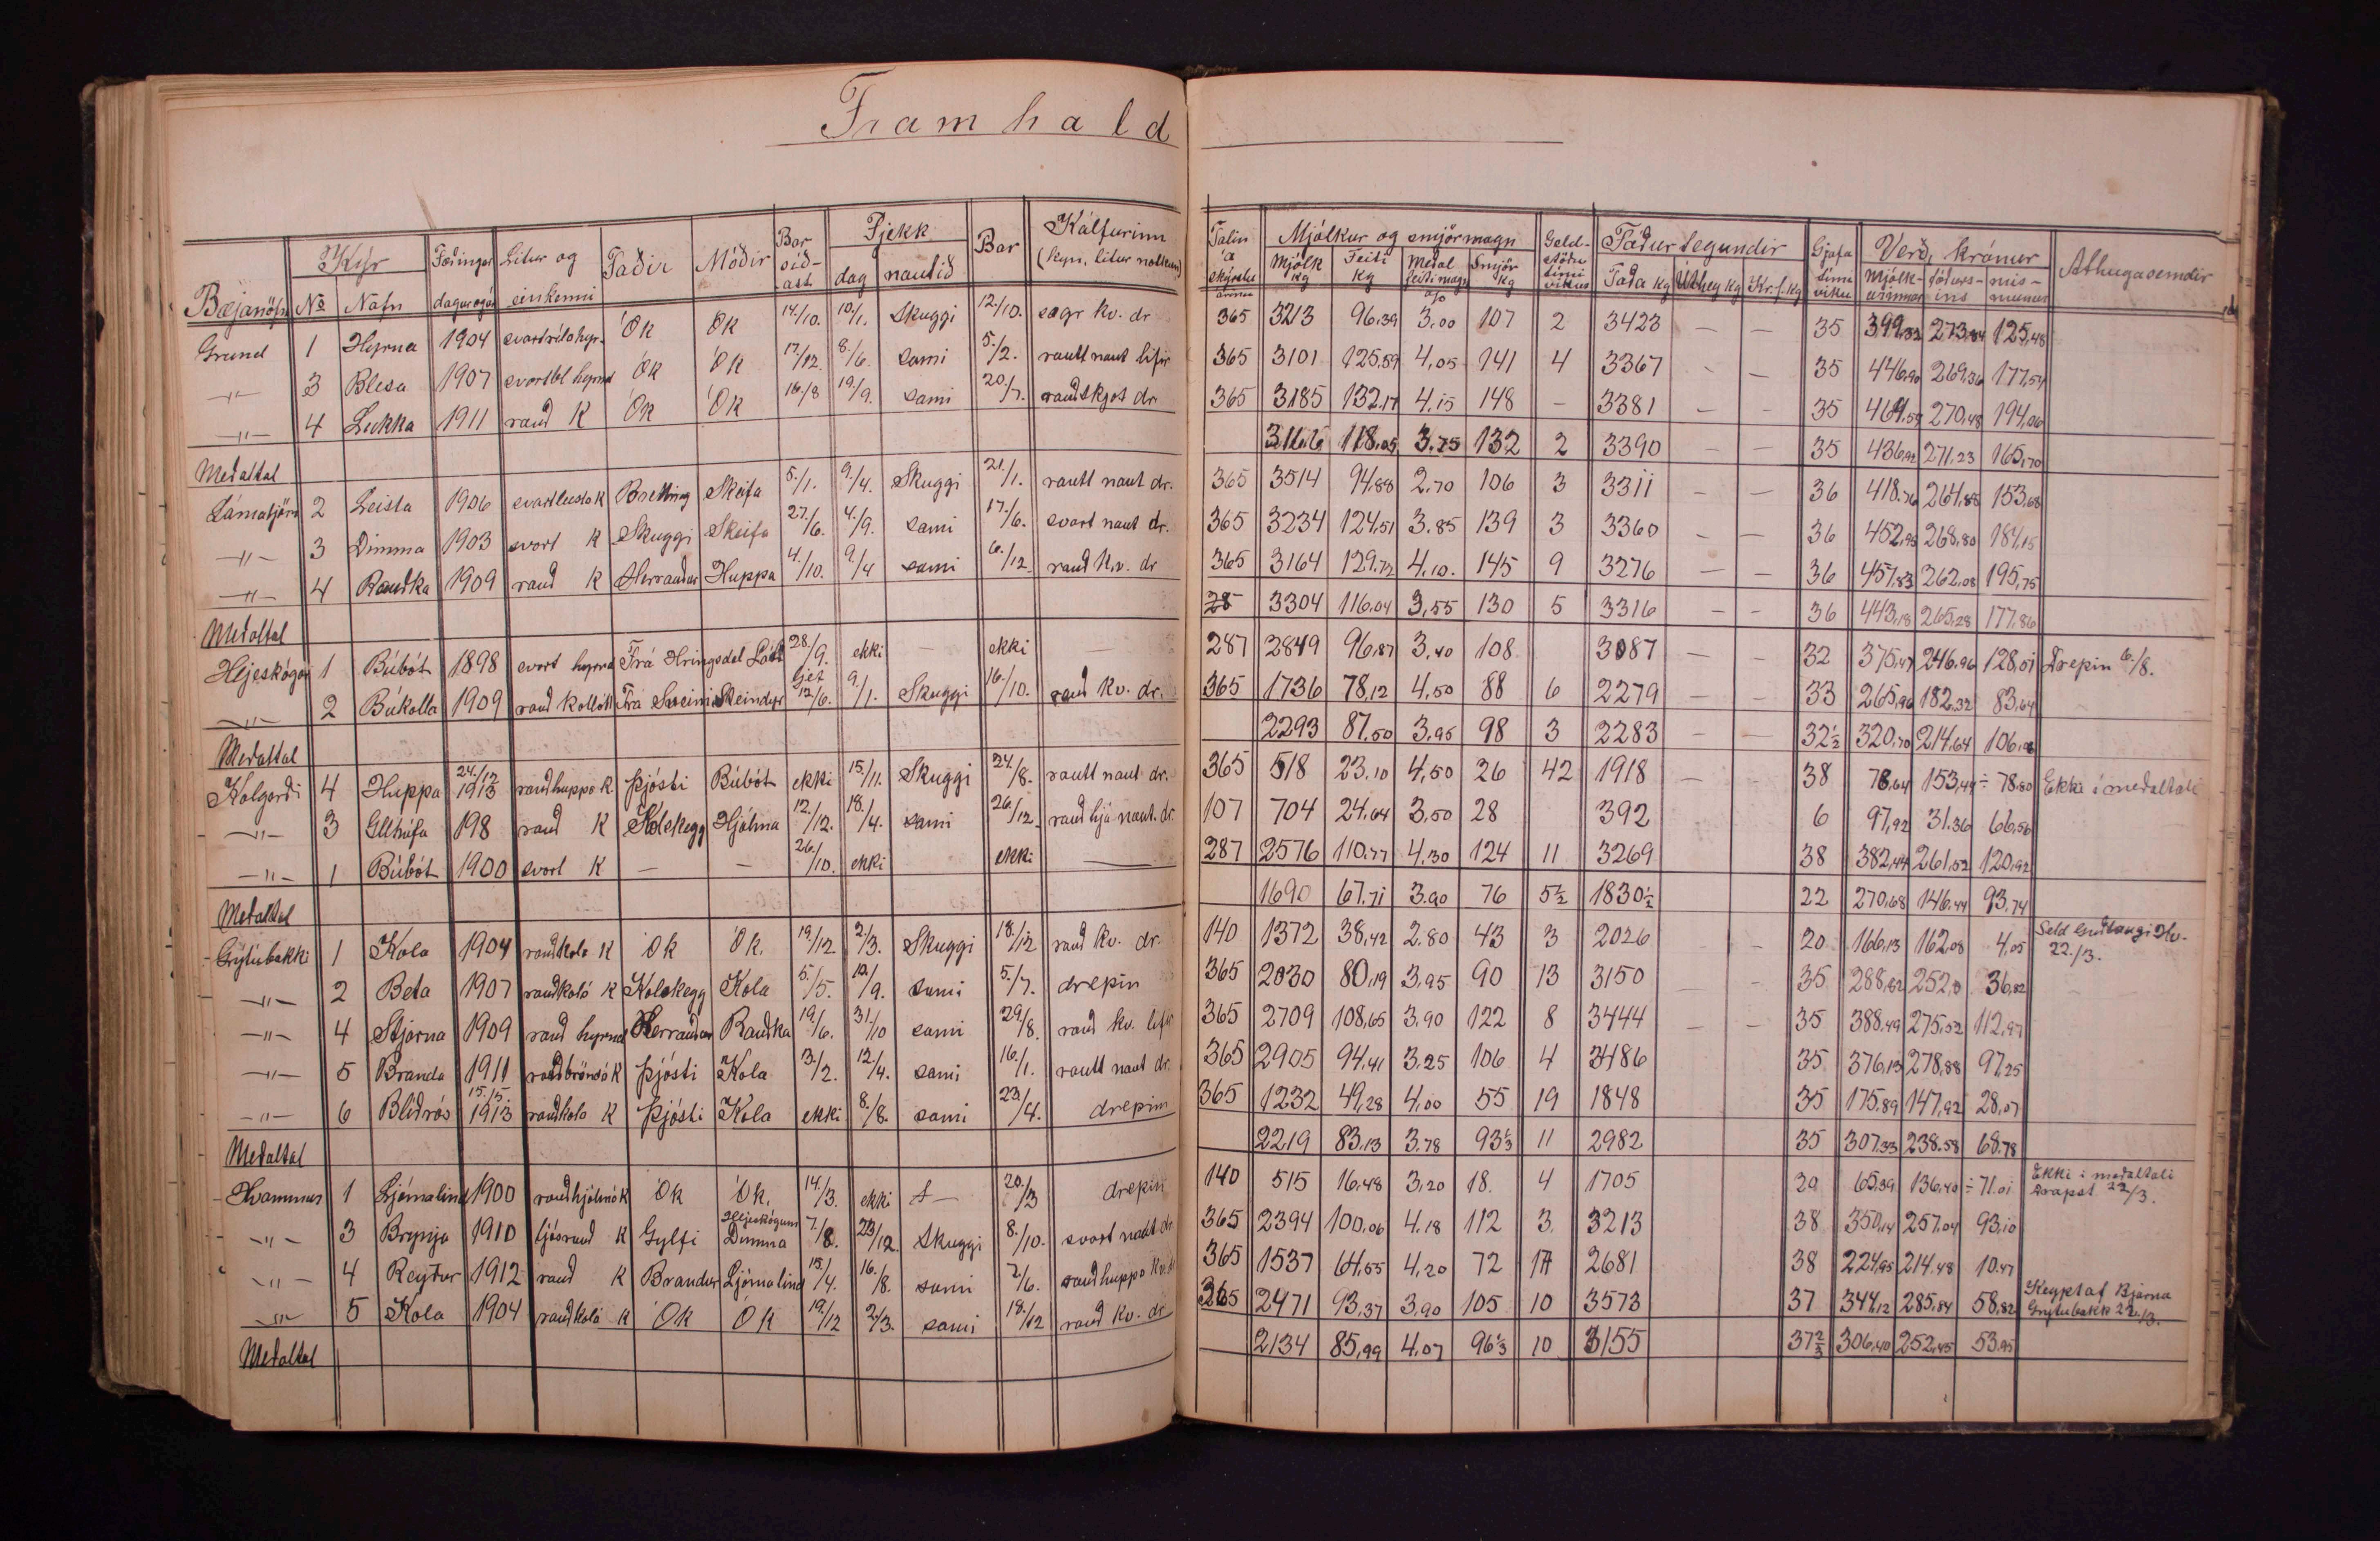 Framhald
Bæjanöfn | Kýr No | Nafn | Fæðingar dagur og ár | Litur og einkenni | Faðir | Móðir | Bar síð-ast | Fjekk dag | nautið | Bar | Kálfurinn (kyn, litur notkun) | Talin á skýrslu árinu | Mjólkur og smjörmagn Mjólk kg | Feiti kg | Meðal feitimagn o/o | Smjör kg | Geld-stöðu tími vikur | Fóðurtegundir Taða kg | Úthey kg | Kr.f. kg | Gjafa tími viku | Verð, krónur Mjólk-urinnar | fóðurs-ins | mis-munur | Athugasemdir
Grund | 1 | Hyrna | 1904 | Ók | Ók | 14./10. | 10/1. | Skuggi | 12./10. | kv. dr | 365 | 3213 | 96.39 | 3,00 | 107 | 2 | 3423 | — | — | 35 | 399,32 | 273,84 | 125,48
—"— | 3 | Blesa | 1907 | svartbl hyrnd | Ók | Ók | 17/12. | 8./6. | sami | 5./2. | rautt naut lifir | 365 | 3101 | 125.59 | 4,05 | 141 | 4 | 3367 | - | — | 35 | 446,90 | 269,36 | 177,54
—"— | 4 | Lukka | 1911 | rauð K | Ók | Ók | 16/8 | 19/9. | sami | 20./7. | rauðskjót dr | 365 | 3185 | 132.17 | 4,15 | 148 | - | 3381 | - | - | 35 | 464.54 | 270,48 | 194,06
Meðaltal | 118,05 | 3.75 | 132 | 2 | 3390 | — | — | 35 | 436,92 | 271.23 | 165,70
2 | Leista | 1906 | svartleista K | Bretting | Skeifa | 5./1. | 9./4. | Skuggi | 21./1. | rautt naut dr. | 365 | 3514 | 94,88 | 2.70 | 106 | 3 | 3311 | - | — | 36 | 418.76 | 264.88 | 153,68
—"— | 3 | Dimma | 1903 | svort K | Skuggi | Skeifa | 27./6. | 4./9. | sami | 17./6. | svart naut dr. | 365 | 3234 | 124,51 | 3.85 | 139 | 3 | 3360 | - | — | 36 | 452,95 | 268,80 | 184,15
—"— | 4 | Rauðka | 1909 | rauð K | Herrauður | Huppa | 4./10. | 9./4 | sami | 6./12. | rauð kv. dr | 365 | 3164 | 129.72 | 4,10. | 145 | 9 | 3276 | — | — | 36 | 457.83 | 262,08 | 195,75
Meðaltal | 3304 | 116.04 | 3,55 | 130 | 5 | 3316 | - | - | 36 | 443,18 | 265,28 | 177,86
Hléskógar | 1 | Búbót | 1898 | svort hyrnd | Frá Hringsdal Látr | 28./9. | ekki | — | ekki | — | 287 | 2849 | 96,87 | 3,40 | 108 | 3087 | — | - | 32 | 375,47 | 246.96 | 128,51 | Drepin 6./8.
—"— | 2 | Búkolla | 1909 | rauð kollótt | Frá | 12/6. | 9./1. | Skuggi | 16./10. | rauð kv. dr. | 365 | 1736 | 78,12 | 4,50 | 88 | 6 | 2279 | — | — | 33 | 265,96 | 182,32 | 83,64
Meðaltal | 2293 | 87.50 | 3,95 | 98 | 3 | 2283 | - | — | 32½ | 320.70 | 214.64
Kolgerði | 4 | Huppa | 24./12 1913 | rauðhuppa K. | Þjósti | Búbót | ekki | 15./11. | Skuggi | 24./8. | rautt naut dr. | 365 | 518 | 23.10 | 4,50 | 26 | 42 | 1918 | — | - | 38 | 78,64 | 153,44 | ÷ 78.80 | Ekki í meðaltali
—"— | 3 | 198 | rauð K | Kolskegg | Hjálma | 12./12. | 18./4. | sami | 26./12. | naut. dr. | 107 | 704 | 24.64 | 3,50 | 28 | 392 | 6 | 97,92 | 31.36 | 66.56
—"— | 1 | Búbót | 1900 | svort K | — | — | 26./10. | ekki | ekki | — | 287 | 2576 | 110.77 | 4,30 | 124 | 11 | 3269 | 38 | 382,44 | 261,52 | 120,92
Meðaltal | 1690 | 67.71 | 3.90 | 76 | 5½ | 1830½ | 22 | 270,68 | 146.44 | 93.74
Grýtubakki | 1 | Kola | 1904 | rauðkola K | Ók | Ók. | 19./12 | 2/3. | Skuggi | 18./12 | rauð kv. dr | 140 | 1372 | 38,42 | 2.80 | 43 | 3 | 2026 | 20 | 166,13 | 162,08 | 4,05 | Seld 22./3.
—"— | 2 | Beta | 1907 | rauðkoló K | Kolskegg | Kola | 5./5. | 10./9. | sami | 5./7. | drepin | 365 | 2030 | 80,19 | 3,95 | 90 | 13 | 3150 | 35 | 288,82 | 252,0 | 36,82
—"— | 4 | Stjarna | 1909 | rauð hyrnd | Herrauður | Rauðka | 19./6. | 31./10 | sami | 29/8. | rauð kv. lifir | 365 | 2709 | 108,65 | 3,90 | 122 | 8 | 3444 | — | - | 35 | 388,49 | 275,52 | 112,97
—"— | 5 | Branda | 1911 | rauðbröndó K | Þjósti | Kola | 13./2. | 12./4. | sami | 16./1. | rautt naut dr. | 365 | 2905 | 94.41 | 3.25 | 106 | 4 | 3486 | 35 | 376,13 | 278,88 | 97,25
—"— | 6 | Blíðrós | 15./5. 1913 | rauðkola K | Þjósti | Kola | ekki | 8./8. | sami | 23./4. | drepin | 365 | 1232 | 49,28 | 4,00 | 55 | 19 | 1848 | 35 | 175.89 | 147,92 | 28,07
Meðaltal | 2219 | 83.13 | 3.78 | 93⅓ | 11 | 2982 | 35 | 307.33 | 238.58 | 68.78
Hvammur | 1 | Ljómalind | 1900 | rauðhjálmó K | Ók | Ók. | 14./3. | ekki | 20./3 | drepin | 140 | 515 | 16.48 | 3,20 | 18. | 4 | 1705 | 20 | 65.39 | 136,40 | ÷ 71.01 | Ekki í meðaltali Drapst 22/3.
—"— | 3 | Brynja | 1910 | ljósrauð K | Gylfi | Hljeskógum Dimma | 7./8. | 23/12. | Skuggi | 8./10. | svart naut dr. | 365 | 2394 | 100,06 | 4.18 | 112 | 3. | 3213 | 38 | 350,14 | 257,04 | 93,10
—"— | 4 | Reyður | 1912 | rauð K | Brandur | Ljómalind | 15./4. | 16./8. | sami | 2/6. | rauðhuppa kv. | 365 | 1537 | 64,55 | 4,20 | 72 | 17 | 2681 | 38 | 224,95 | 214.48 | 10.47
—"— | 5 | Kola | 1904 | rauðkola K | Ók | Ók | 19./12 | 2/3. | sami | 18./12 | rauð kv. dr | 2471 | 93,37 | 3,90 | 105 | 10 | 3573 | 37 | 344,12 | 285,84 | 58,82 | Keypt af Bjarna Grýtubakk 22./3.
Meðaltal | 2134 | 85,99 | 4,07 | 96⅓ | 10 | 3155 | 37⅔ | 306,40 | 252,45 | 53.95